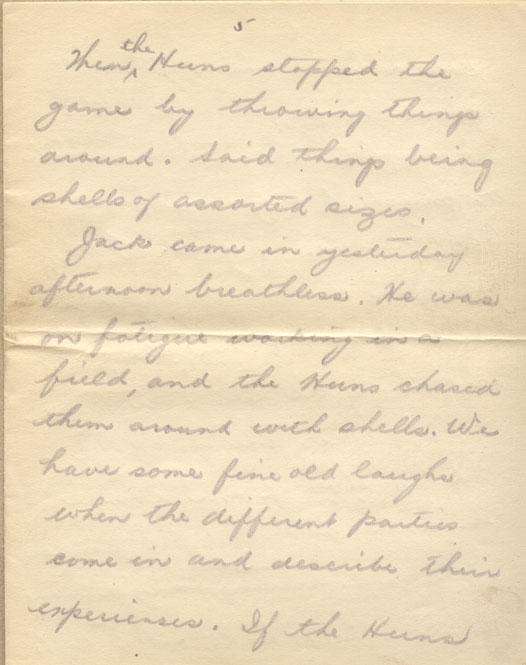 5
Then the Huns stopped the
game by throwing things
around. Said things being
shells of assorted sizes.
Jack came in yesterday
afternoon breathless. He was
on fatigue working in a
field, and the Huns chased
them around with shells. We
have some fine old laughs
when the different parties
come in and describe their
experiences. If the Huns